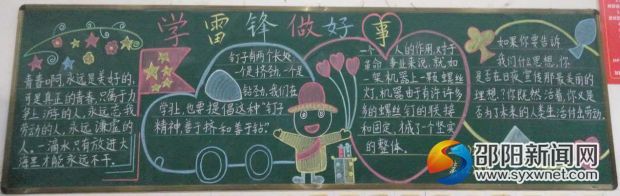 学雷锋做好事
青春啊,永远是美好的,
可是真正的青春,只属于力
争上游的人,永远忘我
劳动的人,永远谦虚的
人。一滴水只有放进大
海里才能永远不干。
钉子有两个长处:
一个是挤劲,一个是
钻劲,我们在
学习上,也要提倡这种"钉子"
精神,善于挤和善于钻。
一个人的作用,对于
革命事业来说,就如
一架机器上一颗螺丝
钉。机器由于有许许多
多的螺丝钉的联接
和固定,才成了一个坚实
的整体。
如果你要告诉
我们什么思想,你
是否在日夜宣传那最美丽的
理想?你既然活着,你又是
否为了未来的人类生活付出劳动。
邵阳新闻网
www.syxwnet.com